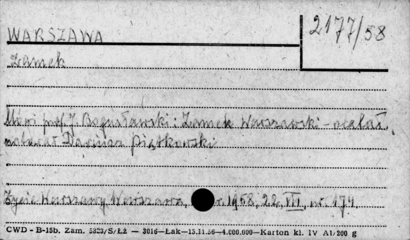 WARSZAWA
2177/58
Zamek
Mówi prof. J. Bogusławski: Zamek Warszawski - ocalał
notował Dariusz Piątkowski
Życie Warszawy Warszawa, r. 1958, 22.VII, nr. 174.
CWD - B-15b. Zam. 5823/S/Łż — 3016—Łak—15.11.56—4.000.000—Karton kl. IV A1/200 g